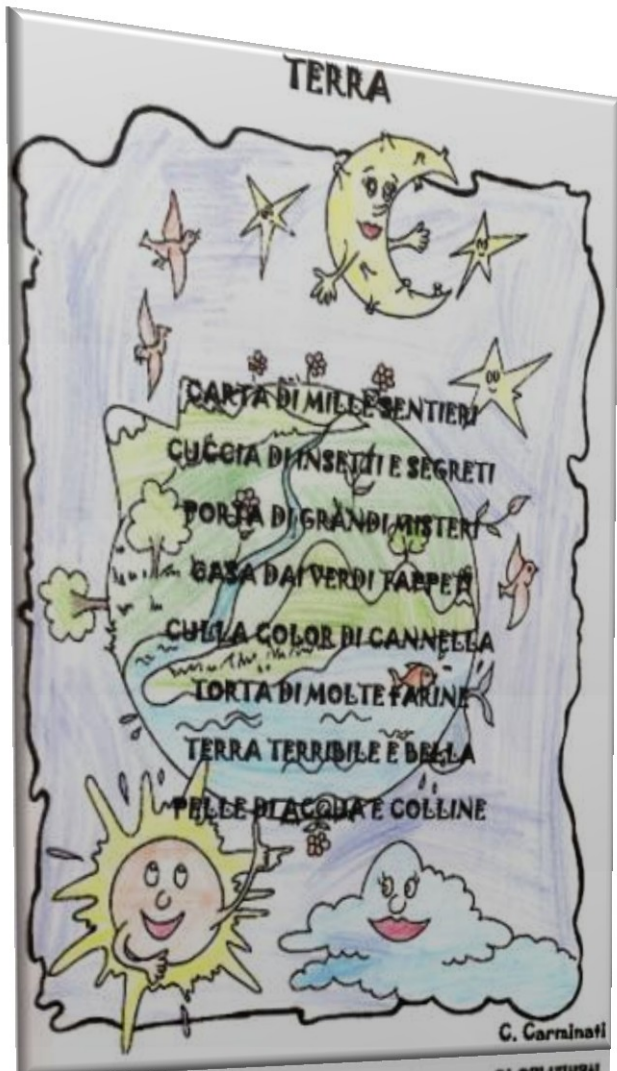 TERRA
CARTA DI MILLE SENTIERI
CUCCIA DI INSETTI E SEGRETI
PORTA DI GRANDI MISTERI
CASA DAI VERDI TAPPETI
CULLA COLOR DI CANNELLA
TORTA DI MOLTE FARINE
TERRA TERRIBILE E BELLA
PELLE DI ACQUA E COLLINE
C. Carminati